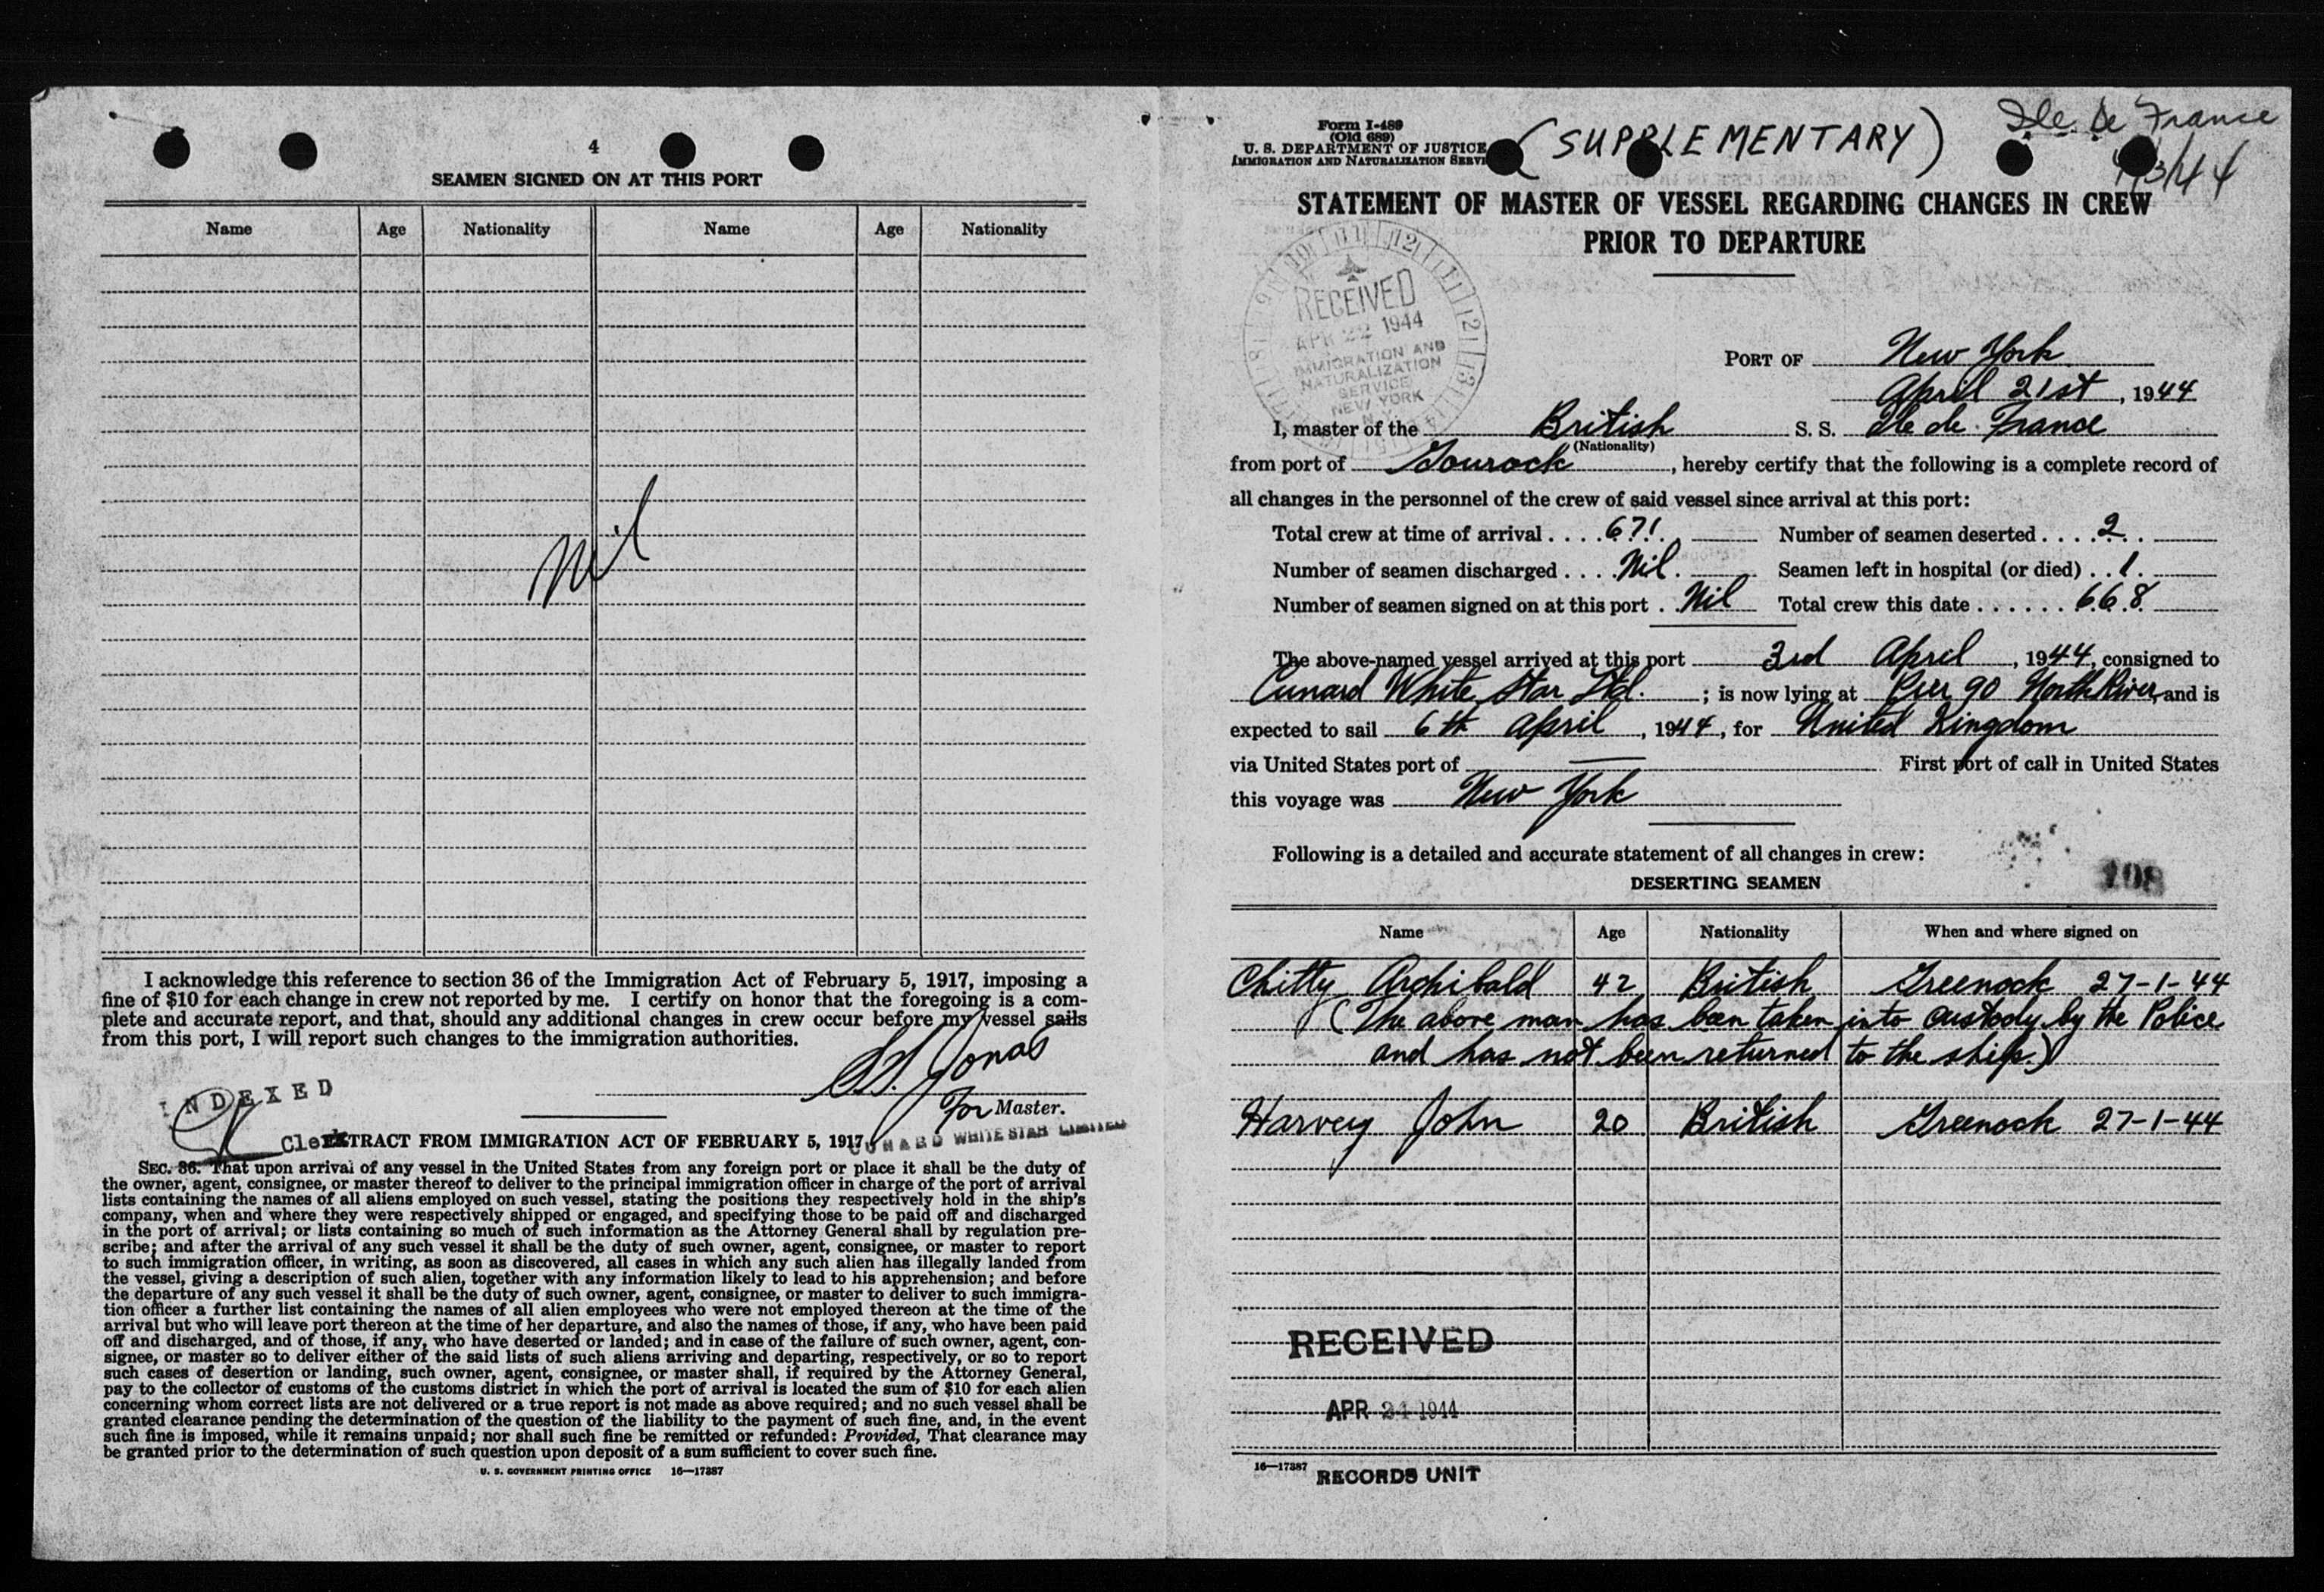 4
SEAMEN SIGNED ON AT THIS PORT
Name Age Nationality Name Age Nationality
Nil
I acknowledge this reference to section 36 of the Immigration Act of February 5, 1917, imposing a
fine of $10 for each change in crew not reported by me. I certify on honor that the foregoing is a com-
plete and accurate report, and that, should any additional changes in crew occur before my vessel sails
from this port, I will report such changes to the immigration authorities.
Jonas
For Master.
INDEXED
Clerk
CUNARD WHITE STAR LIMITED
EXTRACT FROM IMMIGRATION ACT OF FEBRUARY 5, 1917
SEC. 36. That upon arrival of any vessel in the United States from any foreign port or place it shall be the duty of
the owner, agent, consignee, or master thereof to deliver to the principal immigration officer in charge of the port of arrival
lists containing the names of all aliens employed on such vessel, stating the positions they respectively hold in the ship's
company, when and where they were respectively shipped or engaged, and specifying those to be paid off and discharged
in the port of arrival; or lists containing so much of such information as the Attorney General shall by regulation pre-
scribe; and after the arrival of any such vessel it shall be the duty of such owner, agent, consignee, or master to report
to such immigration officer, in writing, as soon as discovered, all cases in which any such alien has illegally landed from
the vessel, giving a description of such alien, together with any information likely to lead to his apprehension; and before
the departure of any such vessel it shall be the duty of such owner, agent, consignee, or master to deliver to such immigra-
tion officer a further list containing the names of all alien employees who were not employed thereon at the time of the
arrival but who will leave port thereon at the time of her departure, and also the names of those, if any, who have been paid
off and discharged, and of those, if any, who have deserted or landed; and in case of the failure of such owner, agent, con-
signee, or master so to deliver either of the said lists of such aliens arriving and departing, respectively, or so to report
such cases of desertion or landing, such owner, agent, consignee, or master shall, if required by the Attorney General,
pay to the collector of customs of the customs district in which the port of arrival is located the sum of $10 for each alien
concerning whom correct lists are not delivered or a true report is not made as above required; and no such vessel shall be
granted clearance pending the determination of the question of the liability to the payment of such fine, and, in the event
such fine is imposed, while it remains unpaid; nor shall such fine be remitted or refunded: Provided, That clearance may
be granted prior to the determination of such question upon deposit of a sum sufficient to cover such fine.
U. S. GOVERNMENT PRINTING OFFICE 16—17387
Form I-489
(Old 689)
U. S. DEPARTMENT OF JUSTICE
IMMIGRATION AND NATURALIZATION SERVI
(SUPPLEMENTARY)
Ile de France
4/3/44
STATEMENT OF MASTER OF VESSEL REGARDING CHANGES IN CREW
PRIOR TO DEPARTURE
RECEIVED
APR 22 1944
IMMIGRATION AND
NATURALIZATION
SERVICE
NEW YORK
N.Y.
PORT OF New York
April 21st, 1944
I, master of the British S. S. Ile de France
(Nationality)
from port of Gourock, hereby certify that the following is a complete record of
all changes in the personnel of the crew of said vessel since arrival at this port:
Total crew at time of arrival . . . . 671. Number of seamen deserted . . . . 2 . .
Number of seamen discharged . . . . Nil . Seamen left in hospital (or died) . . 1 .
Number of seamen signed on at this port . . Nil Total crew this date . . . . . . 668
The above-named vessel arrived at this port 3rd April, 1944, consigned to
Cunard White Star Ltd. ; is now lying at Pier 90 North River, and is
expected to sail 6th April, 1944, for United Kingdom
via United States port of — First port of call in United States
this voyage was New York
Following is a detailed and accurate statement of all changes in crew:
108
DESERTING SEAMEN
Name Age Nationality When and where signed on
Chitty Archibald 42 British Greenock 27-1-44
(The above man has been taken into custody by the Police
and has not been returned to the ship.)
Harvey John 20 British Greenock 27-1-44
RECEIVED
APR 24 1944
16—17387
RECORDS UNIT